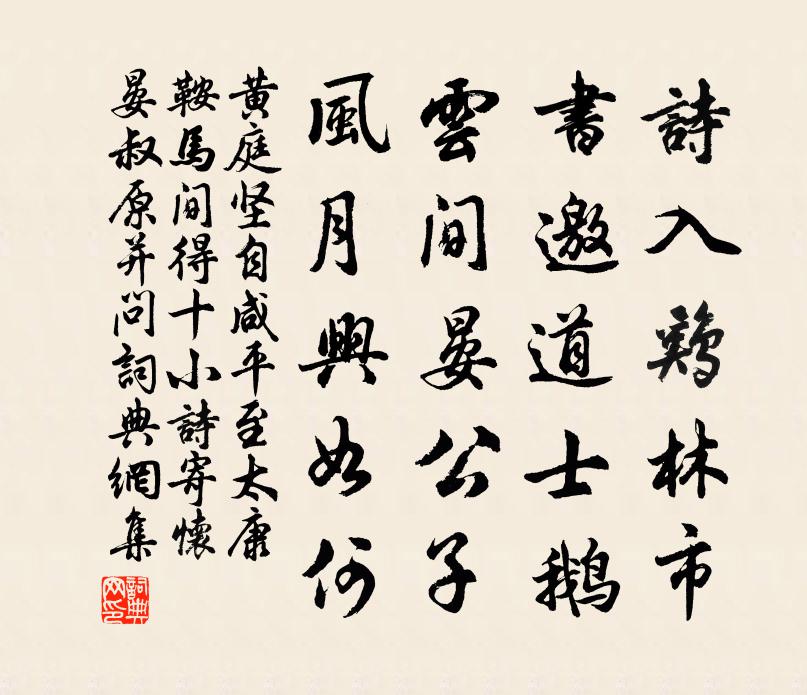 詩入鷄林市
書邀道士鵝
雲間晏公子
風月興如何
黄庭坚自咸平至太康
鞍馬間得十小詩寄懷
晏叔原并問詞典網集
詞典网印